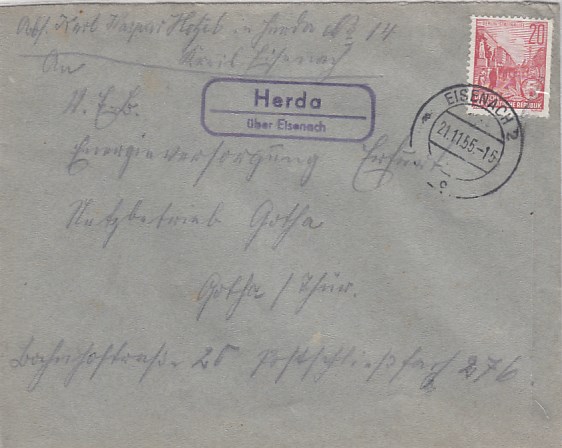 Abs. Karl Kaspar in Herda No 14
Kreis Eisenach
An
V.E.B.
Herda
über Eisenach
EISENACH 2
21.11.56-16
c
20
DEUTSCHE DEMOKRATISCHE REPUBLIK
Energieversorgung Erfurt
Netzbetrieb Gotha
Gotha / Thür.
Bahnhofstraße 25 Postschließfach 276.